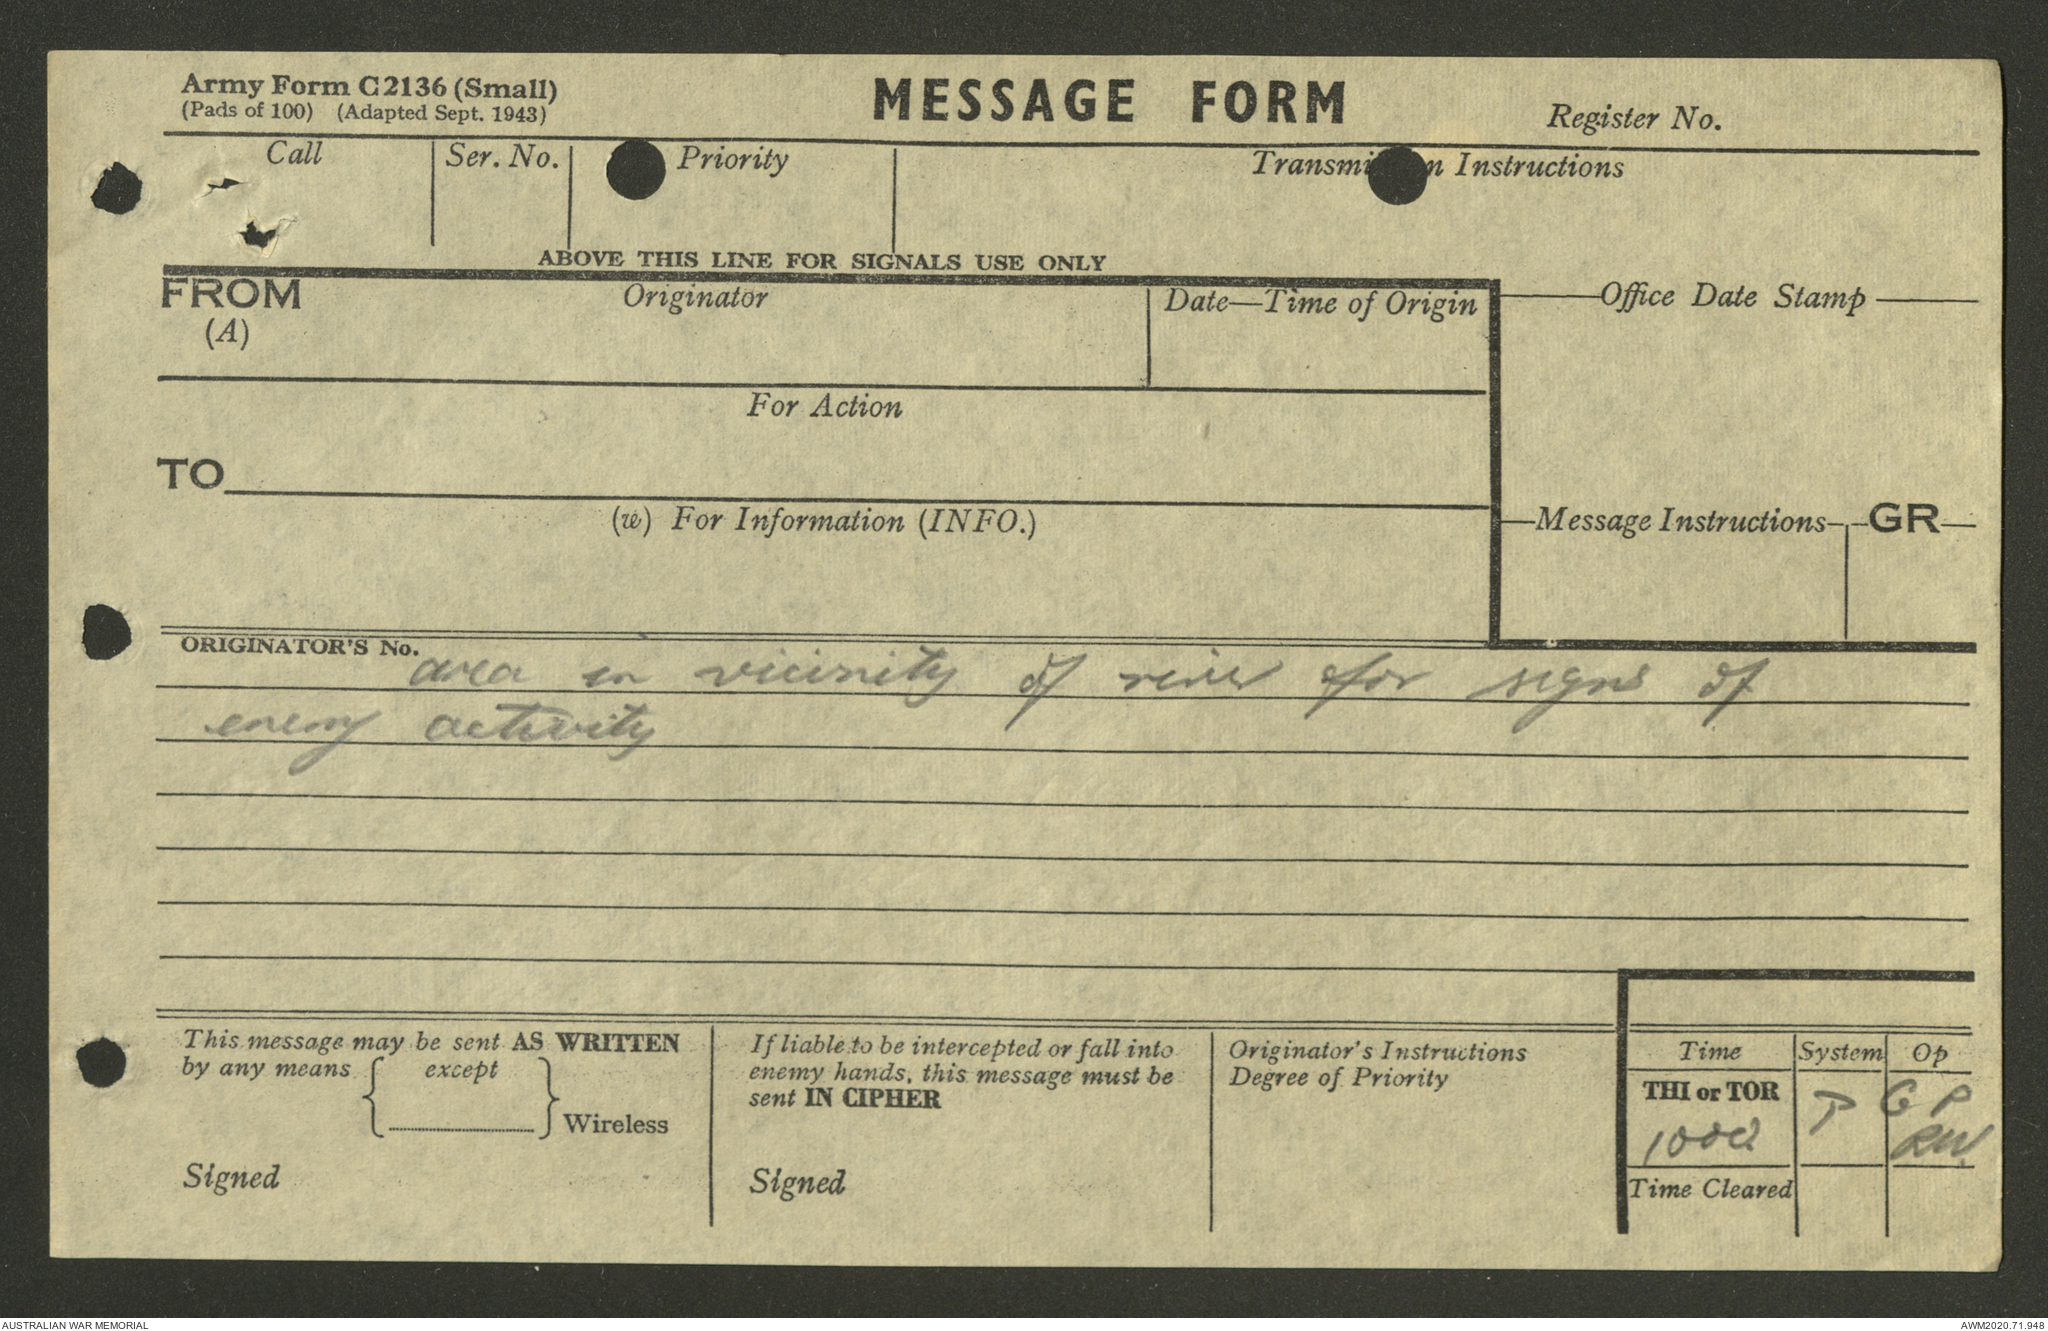 Army Form C2136 (Small)
(Pads of 100) (Adapted Sept. 1943)
MESSAGE FORM
Register No.
Call
Ser. No.
Priority
Transmi n Instructions
ABOVE THIS LINE FOR SIGNALS USE ONLY
FROM
(A)
Originator
Date—Time of Origin
Office Date Stamp
For Action
TO
(w) For Information (INFO.)
Message Instructions
GR
ORIGINATOR'S No.
area in vicinity of river for signs of
enemy activity
This message may be sent AS WRITTEN
by any means except
Wireless
Signed
If liable to be intercepted or fall into
enemy hands, this message must be
sent IN CIPHER
Signed
Originator's Instructions
Degree of Priority
Time System Op
THI or TOR
P G P
RW.
Time Cleared
AUSTRALIAN WAR MEMORIAL
AWM2020.71.948